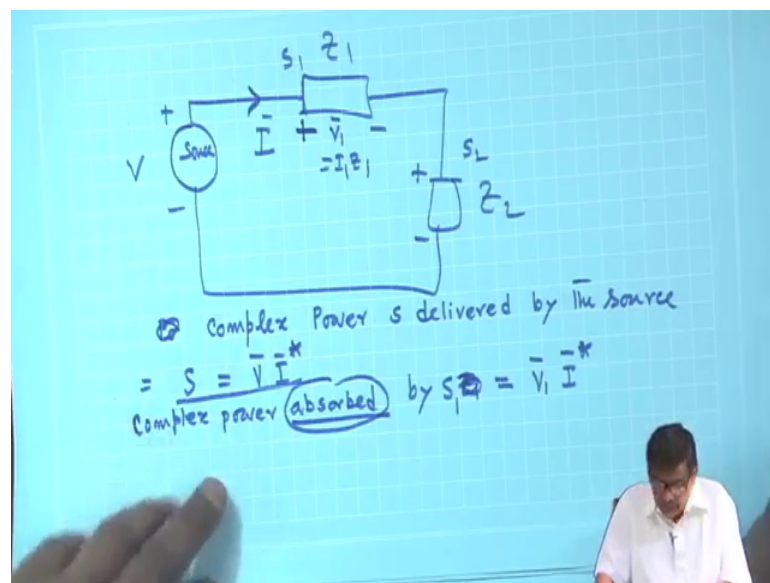 S₁ Z₁
+ Source - V
Ī
+ V̄₁ -
= I₁Z₁
S₂
+ Z₂ -
Complex Power S delivered by The source
= S = V̄ Ī*
Complex power absorbed by S₁ = V̄₁ Ī*